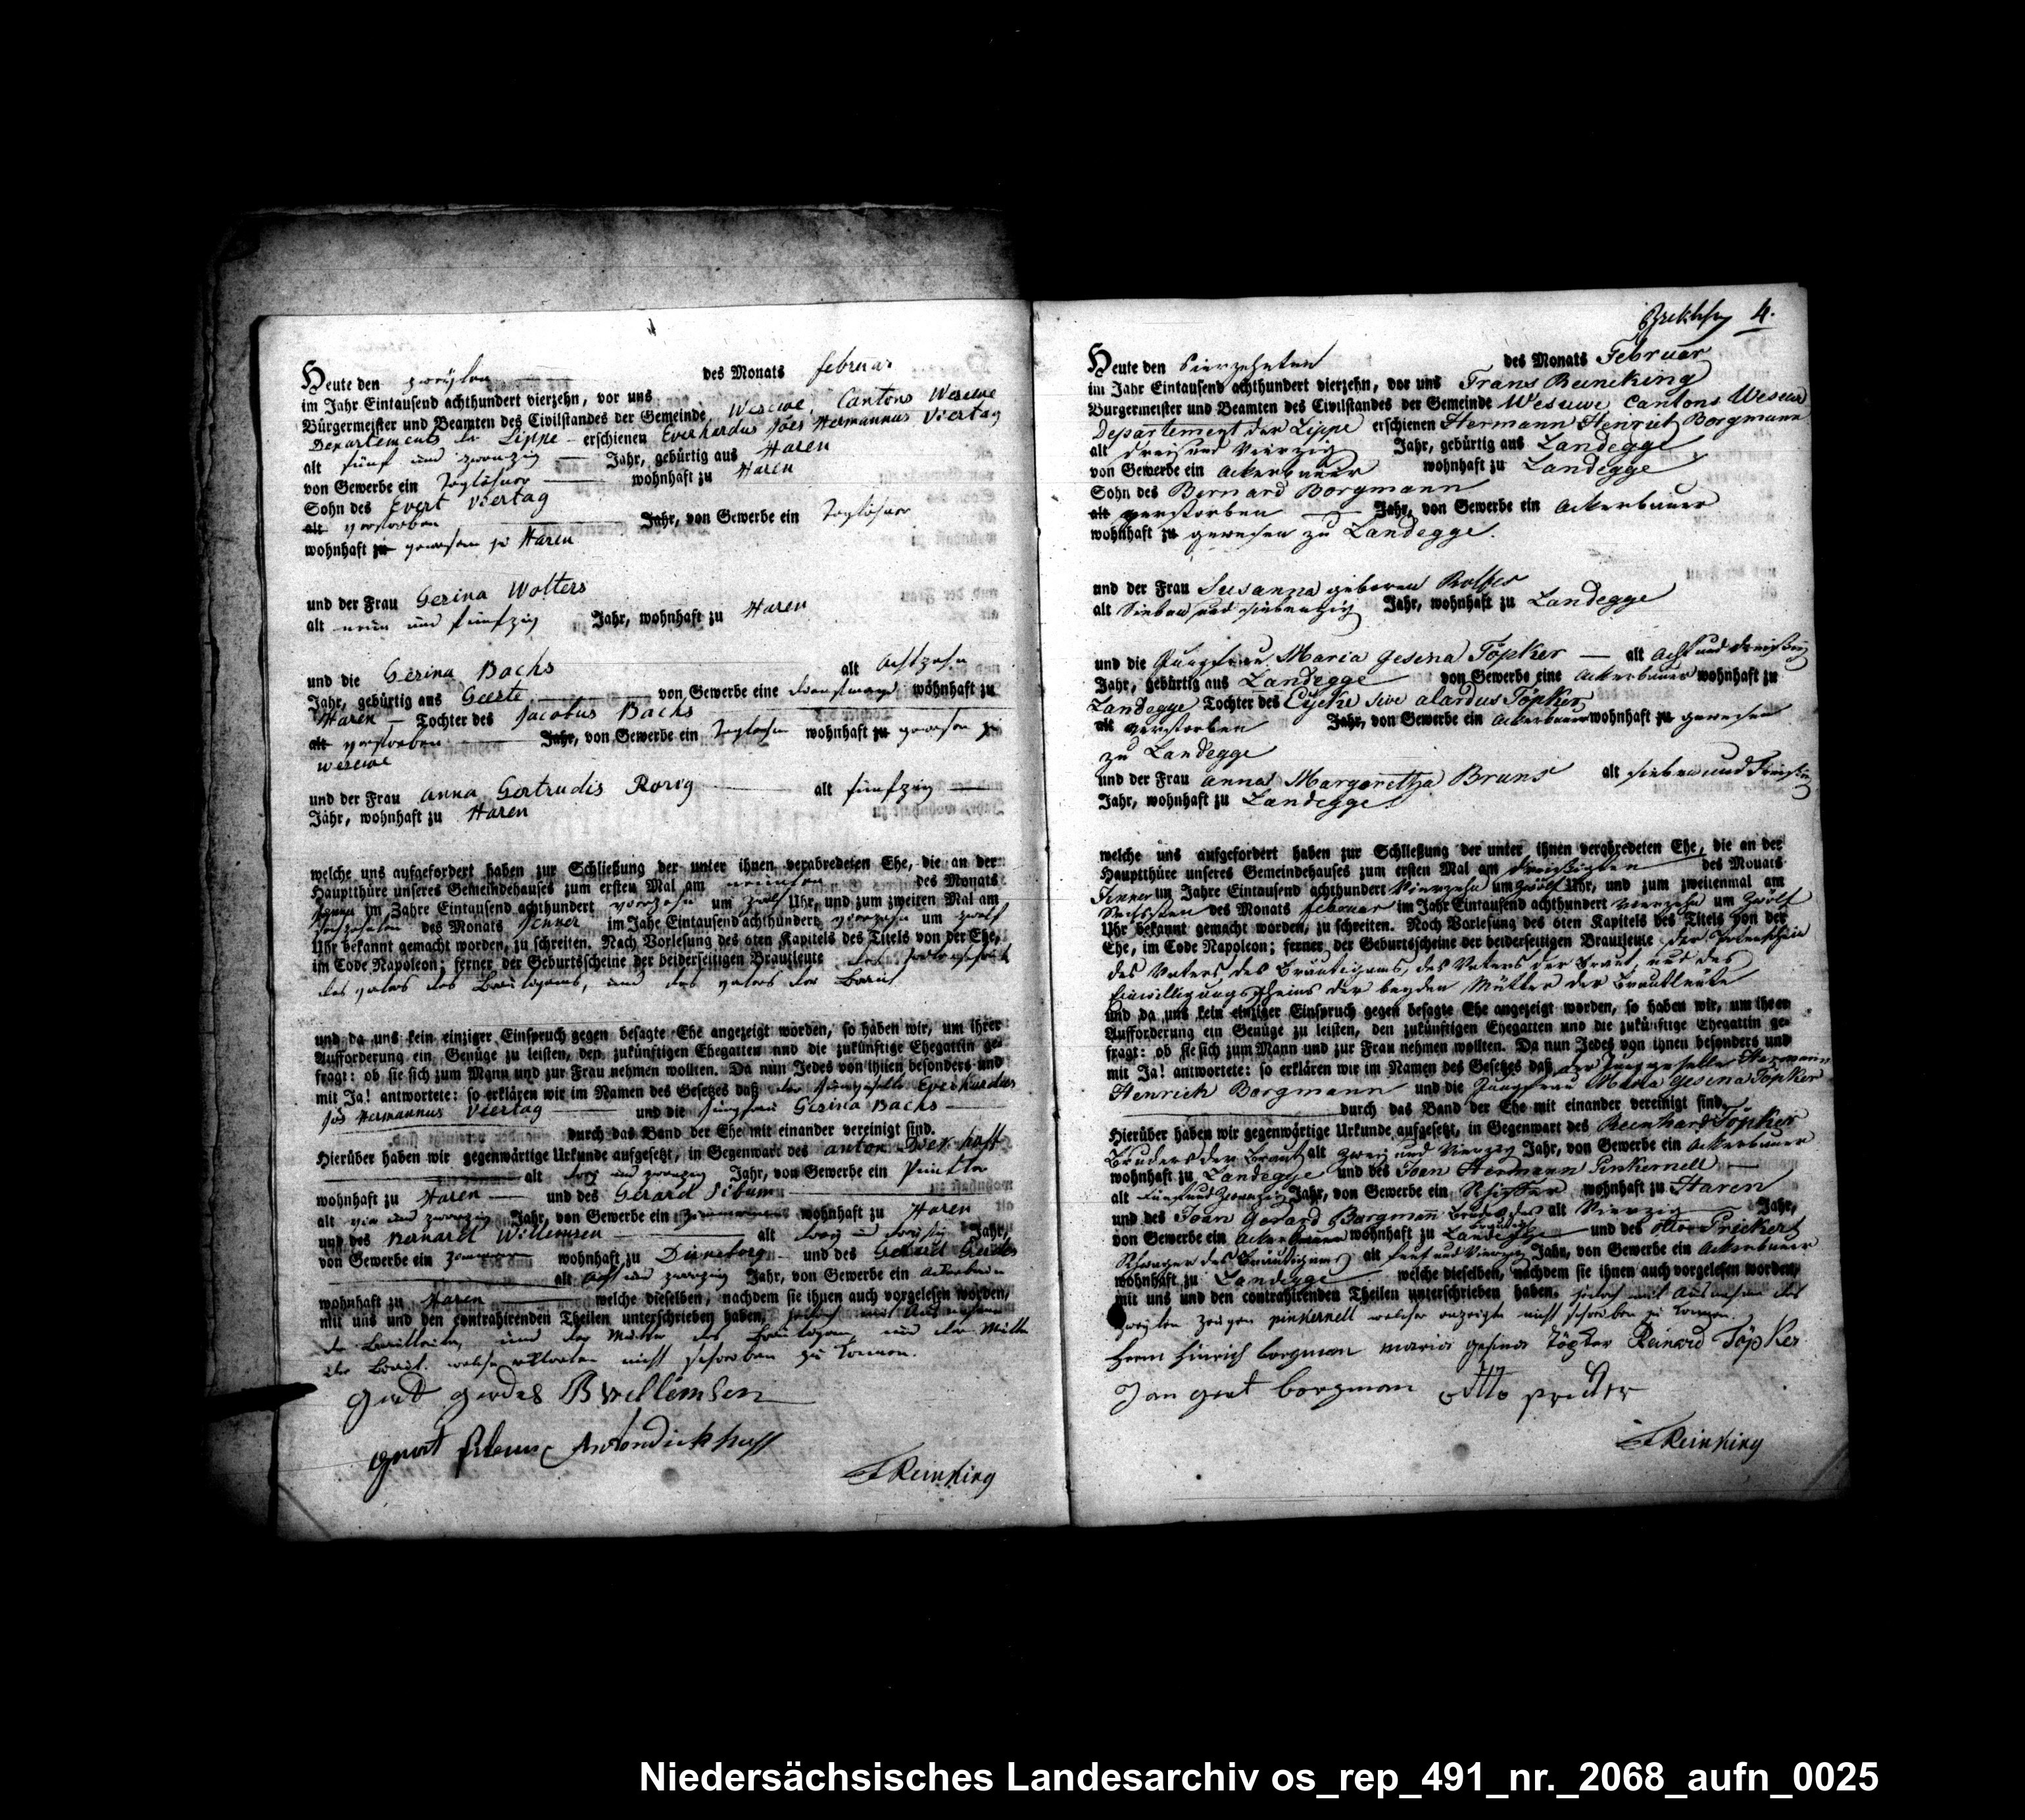 Heute den zweyten des Monats februar
im Jahr Eintausend achthundert vierzehn, vor uns
Bürgermeister und Beamten des Civilstandes der Gemeinde Wesuwe, Cantons Wesuwe
Departements der Lippe erschienen Everhardus Joës Hermannus Viertag
alt fünf und zwanzig Jahr, gebürtig aus Haren
von Gewerbe ein Taglöhner wohnhaft zu Haren
Sohn des Evert Viertag
alt verstorben Jahr, von Gewerbe ein Taglöhner
wohnhaft zu gewesen zu Haren
und der Frau Gesina Wolters
alt neun und fünfzig Jahr, wohnhaft zu Haren
und die Gesina Bachs alt achtzehn
Jahr, gebürtig aus Geeste von Gewerbe eine Dienstmagd wohnhaft zu
Haren Tochter des Jacobus Bachs
alt verstorben Jahr, von Gewerbe ein Taglöhner wohnhaft zu gewesen zu
Wesuwe
und der Frau anna Gertrudis Rorig alt fünfzig
Jahr, wohnhaft zu Haren
welche uns aufgefordert haben zur Schließung der unter ihnen verabredeten Ehe, die an der
Hauptthüre unseres Gemeindehauses zum ersten Mal am neunten des Monats
Jenner im Jahre Eintausend achthundert vierzehn um zwölf Uhr, und zum zweiten Mal am
sechszehnten des Monats Jenner im Jahe Eintausend achthundert vierzehn um zwölf
Uhr bekannt gemacht worden, zu schreiten. Nach Vorlesung des 6ten Kapitels des Titels von der Ehe,
im Code Napoleon; ferner der Geburtsscheine der beiderseitigen Brautleute des
des vaters des Bräutigams, und des vaters der Braut
und da uns kein einziger Einspruch gegen besagte Ehe angezeigt worden, so haben wir, um ihrer
Aufforderung ein Genüge zu leisten, den zukünftigen Ehegatten und die zukünftige Ehegattin ge-
fragt: ob sie sich zum Mann und zur Frau nehmen wollten. Da nun Jedes von ihnen besonders und
mit Ja! antwortete: so erklären wir im Namen des Gesetzes daß der Junggeselle Everhardus
Joës Hermannus Viertag und die Jungfrau Gesina Bachs
durch das Band der Ehe mit einander vereinigt sind.
Hierüber haben wir gegenwärtige Urkunde aufgesetzt, in Gegenwart des anton Dieckhaff
alt und zwanzig Jahr, von Gewerbe ein
wohnhaft zu Haren und des Gerard Sibum
alt vier und zwanzig Jahr, von Gewerbe ein wohnhaft zu Haren
und des Bernard Willemsen alt drey und dreyßig Jahr,
von Gewerbe ein wohnhaft zu Düneborg und des Gerard Gerdes
alt acht und zwanzig Jahr, von Gewerbe ein Ackerbauer
wohnhaft zu Haren welche dieselben, nachdem sie ihnen auch vorgelesen worden,
mit uns und den contrahirenden Theilen unterschrieben haben, jedoch mit Ausnahme
der Brautleuten, und der Mutter des Bräutigams, und der Mutter
der Braut. welche erklärten nicht schreiben zu können.
gerd gerdes B willemsen
gerat sibum Antondiekhaff
F Reinking
4.
Heute den Vierzehnten des Monats Februar
im Jahr Eintausend achthundert vierzehn, vor uns Frans Reineking
Bürgermeister und Beamten des Civilstandes der Gemeinde Wesuwe Cantons Wesuwe
Departement der Lippe erschienen Hermann Henrich Borgmann
alt drei und Vierzig Jahr, gebürtig aus Landegge
von Gewerbe ein Ackerbauer wohnhaft zu Landegge
Sohn des Bernard Borgmann
alt verstorben Jahr, von Gewerbe ein Ackerbauer
wohnhaft zu gewesen zu Landegge.
und der Frau Susanna geboren Rolfes
alt Sieben und siebenzig Jahr, wohnhaft zu Landegge
und die Jungfrau Maria Gesina Töpker alt Acht und dreißig
Jahr, gebürtig aus Landegge von Gewerbe eine Ackerbauer wohnhaft zu
Landegge Tochter des Eycke sive alardus Töpker
alt verstorben Jahr, von Gewerbe ein Ackerbauer wohnhaft zu gewesen
zu Landegge
und der Frau anna Margaretha Bruns alt sieben und
Jahr, wohnhaft zu Landegge
welche uns aufgefordert haben zur Schließung der unter ihnen verabredeten Ehe, die an der
Hauptthüre unseres Gemeindehauses zum ersten Mal am dreißigsten des Monats
Jenner im Jahre Eintausend achthundert Vierzehn um zwölf Uhr, und zum zweitenmal am
Sechsten des Monats februar im Jahr Eintausend achthundert vierzehn um zwölf
Uhr bekannt gemacht worden, zu schreiten. Noch Vorlesung des 6ten Kapitels des Titels von der
Ehe, im Code Napoleon; ferner der Geburtsscheine der beiderseitigen Brautleute der
des Vaters des Bräutigams, des Vaters der Braut, und des
Einwilligungsscheins der beyden Mütter der Brautleute
und da uns kein einziger Einspruch gegen besagte Ehe angezeigt worden, so haben wir, um ihrer
Aufforderung ein Genüge zu leisten, den zukünftigen Ehegatten und die zukünftige Ehegattin ge-
fragt: ob sie sich zum Mann und zur Frau nehmen wollten. Da nun Jedes von ihnen besonders und
mit Ja! antwortete: so erklären wir im Namen des Gesetzes daß der Junggeselle Hermann
Henrich Borgmann und die Jungfrau Maria Gesina Töpker
durch das Band der Ehe mit einander vereinigt sind.
Hierüber haben wir gegenwärtige Urkunde aufgesetzt, in Gegenwart des Reinhard Töpker
Bruders der Braut alt zwei und Vierzig Jahr, von Gewerbe ein Ackerbauer
wohnhaft zu Landegge und des Joan Hermann Pinkernell
alt fünf und zwanzig Jahr, von Gewerbe ein Schiffer wohnhaft zu Haren
und des Joan Gerard Borgmann Bruder des Bräutigams alt Vierzig Jahr,
von Gewerbe ein Ackerbauer wohnhaft zu Landegge und des otto Prickert
Schwager des Bräutigams alt fünf und Vierzig Jahr, von Gewerbe ein Ackerbauer
wohnhaft zu Landegge welche dieselben, nachdem sie ihnen auch vorgelesen worden,
mit uns und den contrahirenden Theilen unterschrieben haben. jedoch mit Ausnahme des
zweyten zeugen pinkernell welcher anzeigte nicht schreiben zu können.
Herm hinrich borgman maria gesina töpker Reinard Töpker
Jan gerat borgman otto
F Reinking
Niedersächsisches Landesarchiv os_rep_491_nr._2068_aufn_0025